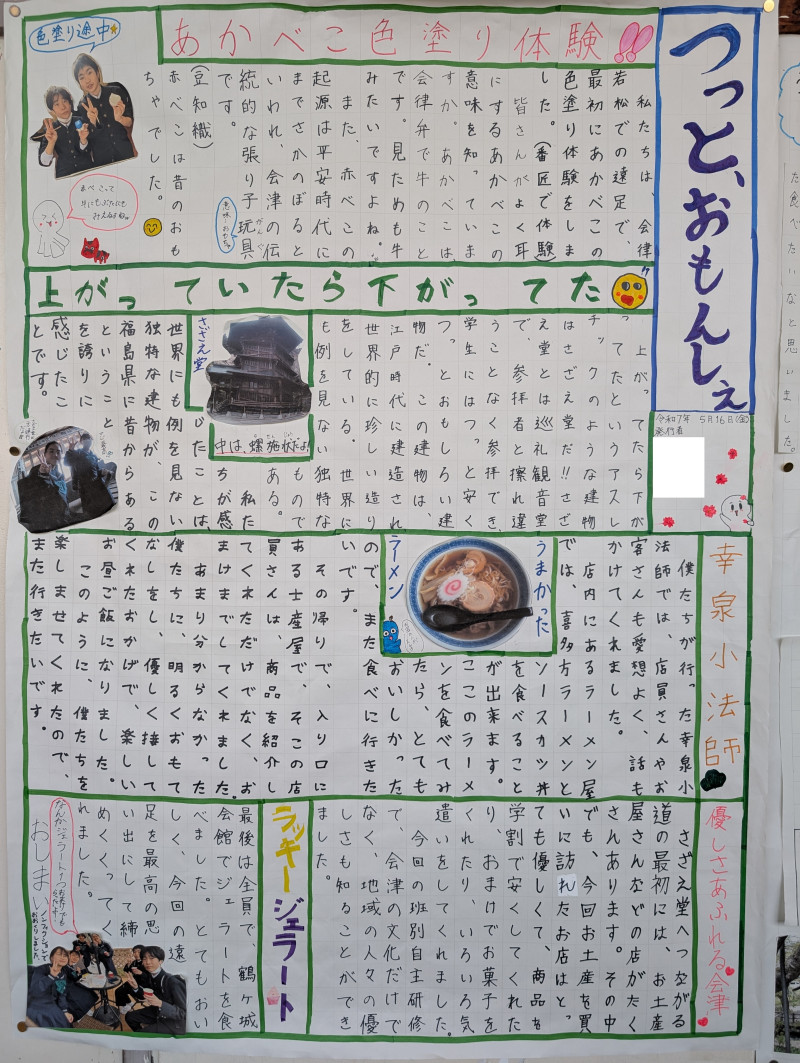 つっと、おもんしぇ
令和7年 5月16日(金)
発行者
あかべこ色塗り体験!!
私たちは、会律
若松での遠足で、
最初にあかべこの
色塗り体験をしま
した。(番匠で体験)
皆さんがよく耳
にするあかべこの
意味を知っていま
すか。あかべこは、
会律弁で牛のこと
です。見ためも牛
みたいですよね。
また、赤べこの
起源は平安時代に
までさかのぼると
いわれ、会津の伝
統的な張り子玩具
がんぐ
意味:おもちゃ
です。
(豆知織)
赤べこは昔のおも
ちゃでした。
色塗り途中
上がっていたら下がってた
上がってたら下が
ってたというアスレ
チックのような建物
はさざえ堂だ!!さざ
え堂とは巡礼観音堂
で、参拝者と擦れ違
うことなく参拝でき、
学生にはつっと安く
つっとおもしろい建
物だ。この建物は、
江戸時代に建造され
世界的に珍しい造り
をしている。世界に
も例を見ない独特な
もので
ある。
私た
ちが感
じたことは、
世界にも例を見ない
独特な建物が、この
福島県に昔からある
ということ
を誇りに
感じたこ
とです。
さざえ堂
中は、螺旋状だよ!
幸泉小法師
僕たちが行った幸泉小
法師では、店員さんやお
客さんも愛想よく、話も
かけてくれました。
店内にあるラーメン屋
では、喜多方ラーメンと
ソースカツ丼
を食べること
が出来ます。
ここのラーメ
ンを食べてみ
たら、とても
おいしかった
ので、また食べに行きた
いです。
その帰りで、入り口に
ある土産屋で、そこの店
員さんは、商品を紹介し
てくれただけでなく、お
まけまでしてくれました。
あまり分からなかった
僕たちに、明るくおもて
なしをし、優しく接して
くれたおかげで、楽しい
お昼ご飯になりました。
このように、僕たちを
楽しませてくれたので、
また行きたいです。
うまかった
ラーメン
優しさあふれる会津
さざえ堂へつながる
道の最初には、お土産
屋さんなどの店がたく
さんあります。その中
でも、今回お土産を買
いに訪れたお店はとっ
ても優しくて、商品を
学割で安くしてくれた
り、おまけでお菓子を
くれたり、いろいろ気
遣いをしてくれました。
今回の班別自主研修
で、会津の文化だけで
なく、地域の人々の優
しさも知ることができ
ました。
ラッキージェラート
最後は全員で、鶴ヶ城
会館でジェラートを食
べました。とてもおい
しく、今回の遠
足を最高の思
い出にして締
めくくってく
れました。
おしまい